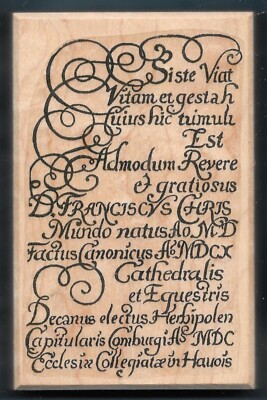 Siste Viat
Vitam et gesta h
uius hic tumuli
Est
Admodum Revere
et gratiosus
D. FRANCISCVS CHRIS
Mundo natus Ao MD
Factus Canonicus Ao MDCX
Cathedralis
et Equestris
Decanus electus Herbipolen
Capitularis Comburgi Ao MDC
Ecclesiæ Collegiatæ in Hauois